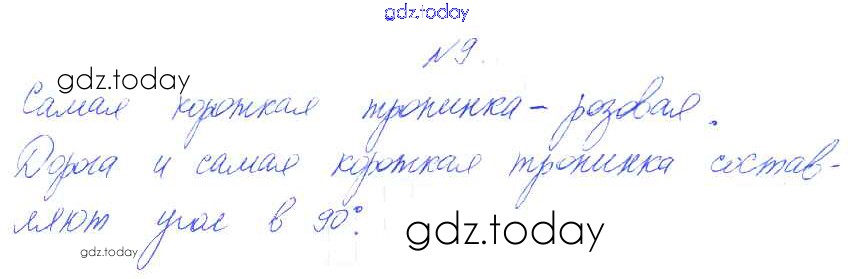 gdz.today
№9.
gdz.today
Самая короткая тропинка – розовая.
Дорога и самая короткая тропинка состав-
ляют угол в 90°.
gdz.today
gdz.today